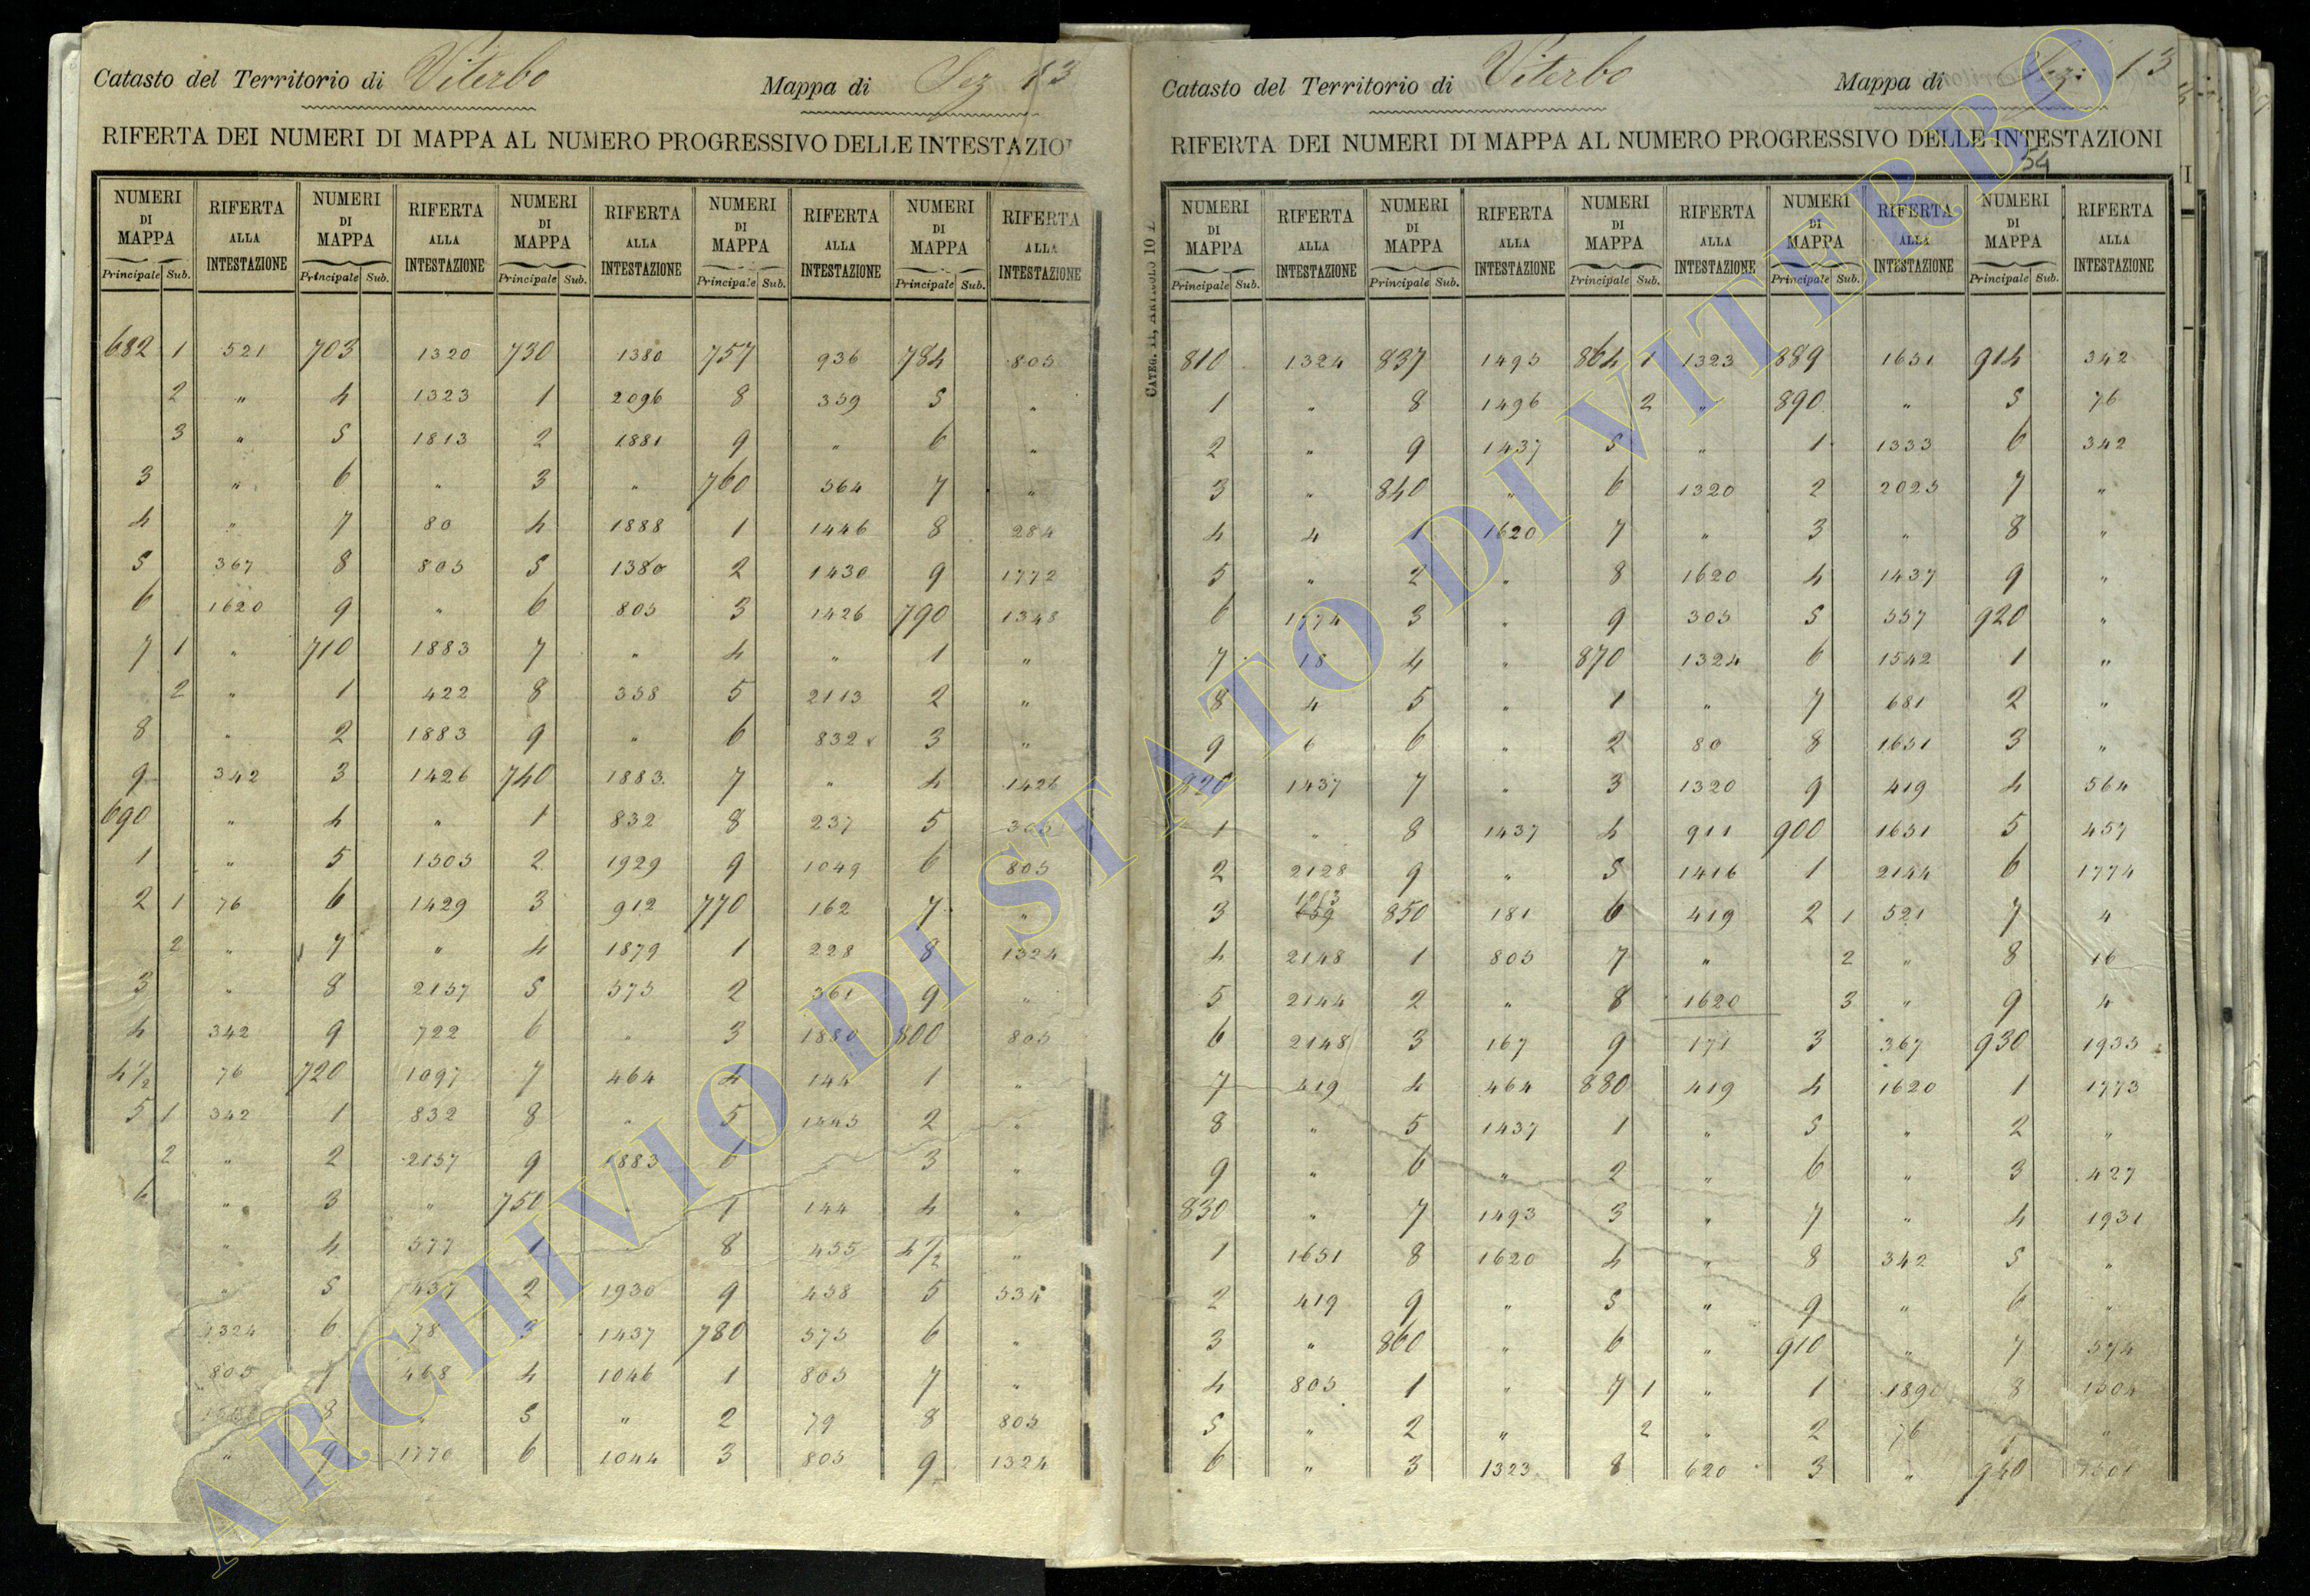 Catasto del Territorio di Viterbo Mappa di Sez 13
RIFERTA DEI NUMERI DI MAPPA AL NUMERO PROGRESSIVO DELLE INTESTAZIO
NUMERI DI MAPPA RIFERTA ALLA INTESTAZIONE NUMERI DI MAPPA RIFERTA ALLA INTESTAZIONE NUMERI DI MAPPA RIFERTA ALLA INTESTAZIONE NUMERI DI MAPPA RIFERTA ALLA INTESTAZIONE NUMERI DI MAPPA RIFERTA ALLA INTESTAZIONE
Principale Sub. Principale Sub. Principale Sub. Principale Sub. Principale Sub.
682 1 521 703 1320 730 1380 757 936 784 805
2 " 4 1323 1 2096 8 359 5 "
3 " 5 1813 2 1881 9 " 6 "
3 " 6 " 3 " 760 564 7 "
4 " 7 80 4 1888 1 1446 8 284
5 367 8 805 5 1380 2 1430 9 1772
6 1620 9 " 6 805 3 1426 790 1348
7 1 " 710 1883 7 " 4 " 1 "
2 " 1 422 8 358 5 2113 2 "
8 " 2 1883 9 " 6 832 3 "
9 342 3 1426 740 1883 7 " 4 1426
690 " 4 " 1 832 8 237 5 305
1 " 5 1505 2 1929 9 1049 6 805
2 1 76 6 1429 3 912 770 162 7 "
2 " 7 " 4 1879 1 228 8 1324
3 " 8 2157 5 575 2 361 9 "
4 342 9 722 6 " 3 1880 800 805
4 1/2 76 720 1097 7 464 4 144 1 "
5 1 342 1 832 8 " 5 1445 2 "
2 " 2 2157 9 1883 6 " 3 "
6 " 3 " 750 " 7 144 4 "
" 4 577 1 " 8 455 4 1/2 "
" 5 437 2 1930 9 458 5 534
1324 6 78 3 1437 780 575 6 "
805 7 468 4 1046 1 805 7 "
8 " 5 " 2 79 8 805
" 9 1770 6 1044 3 805 9 1324
Catasto del Territorio di Viterbo Mappa di Sez: 13
RIFERTA DEI NUMERI DI MAPPA AL NUMERO PROGRESSIVO DELLE INTESTAZIONI
54
NUMERI DI MAPPA RIFERTA ALLA INTESTAZIONE NUMERI DI MAPPA RIFERTA ALLA INTESTAZIONE NUMERI DI MAPPA RIFERTA ALLA INTESTAZIONE NUMERI DI MAPPA RIFERTA ALLA INTESTAZIONE NUMERI DI MAPPA RIFERTA ALLA INTESTAZIONE
Principale Sub. Principale Sub. Principale Sub. Principale Sub. Principale Sub.
810 1324 837 1495 864 1 1323 889 1651 914 342
1 " 8 1496 2 " 890 " 5 76
2 " 9 1437 5 " 1 1333 6 342
3 " 840 " 6 1320 2 2025 7 "
4 4 1 1620 7 " 3 " 8 "
5 " 2 " 8 1620 4 1437 9 "
6 1774 3 " 9 305 5 557 920 "
7 18 4 " 870 1324 6 1542 1 "
8 4 5 " 1 " 7 681 2 "
9 6 6 " 2 80 8 1651 3 "
820 1437 7 " 3 1320 9 419 4 564
1 " 8 1437 4 911 900 1651 5 457
2 2128 9 " 5 1416 1 2144 6 1774
3 659 850 181 6 419 2 1 521 7 4
4 2148 1 805 7 " 2 " 8 16
5 2144 2 " 8 1620 3 " 9 4
6 2148 3 167 9 171 3 367 930 1935
7 419 4 464 880 419 4 1620 1 1773
8 " 5 1437 1 " 5 " 2 "
9 " 6 " 2 " 6 " 3 427
830 " 7 1493 3 " 7 " 4 1931
1 1651 8 1620 4 " 8 342 5 "
2 419 9 " 5 " 9 " 6 "
3 " 860 " 6 " 910 " 7 574
4 805 1 " 7 1 " 1 1890 8 1504
5 " 2 " 2 " 2 76 "
6 " 3 1323 8 620 3 " 940
ARCHIVIO DI STATO DI VITERBO